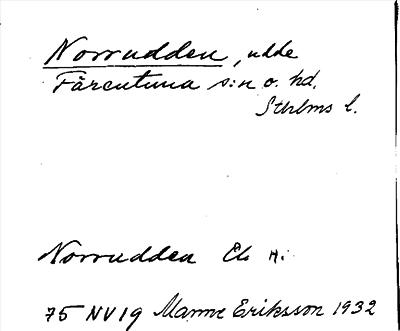 Norrudden, udde
Färentuna s:n o. hd.
Sthlms l.
Norrudden Ek H:
75 NV 19 Manne Eriksson 1932